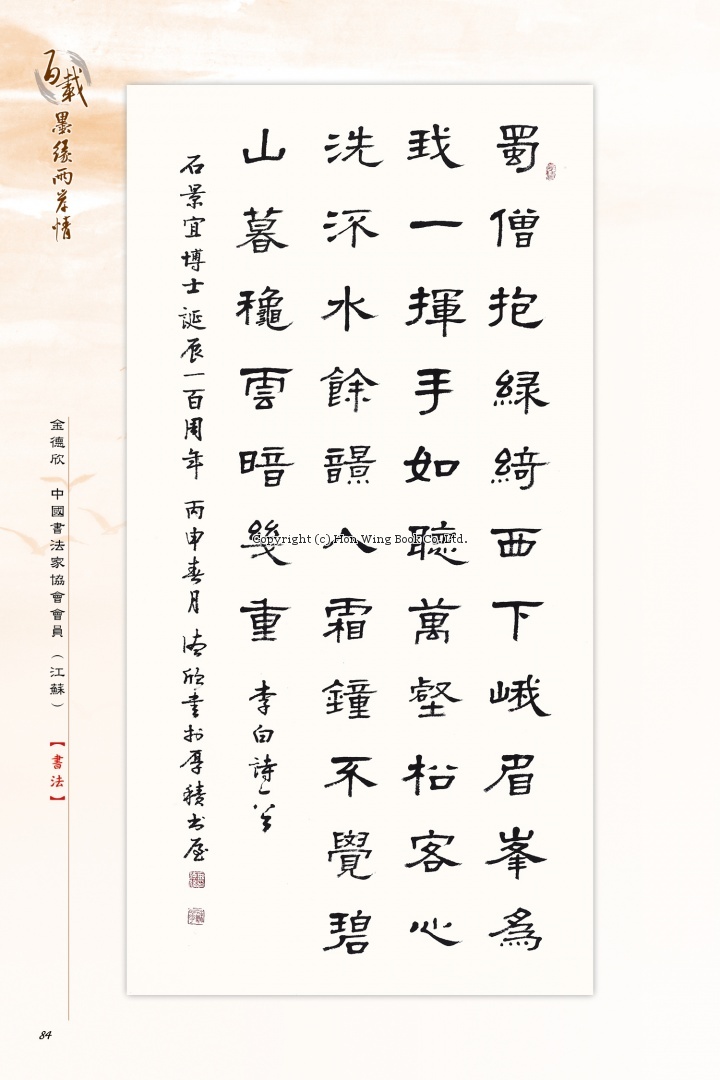 百載墨緣兩岸情
蜀僧抱緑綺西下峨眉峯為
我一揮手如聽萬壑松客心
洗流水餘韻入霜鐘不覺碧
山暮穐雲暗幾重 李白詩一首
石景宜博士誕辰一百周年 丙申春月 德欣書於厚積書屋
金德欣 中國書法家協會會員（江蘇）【書法】
Copyright (c) Hon Wing Book Co.,Ltd.
84